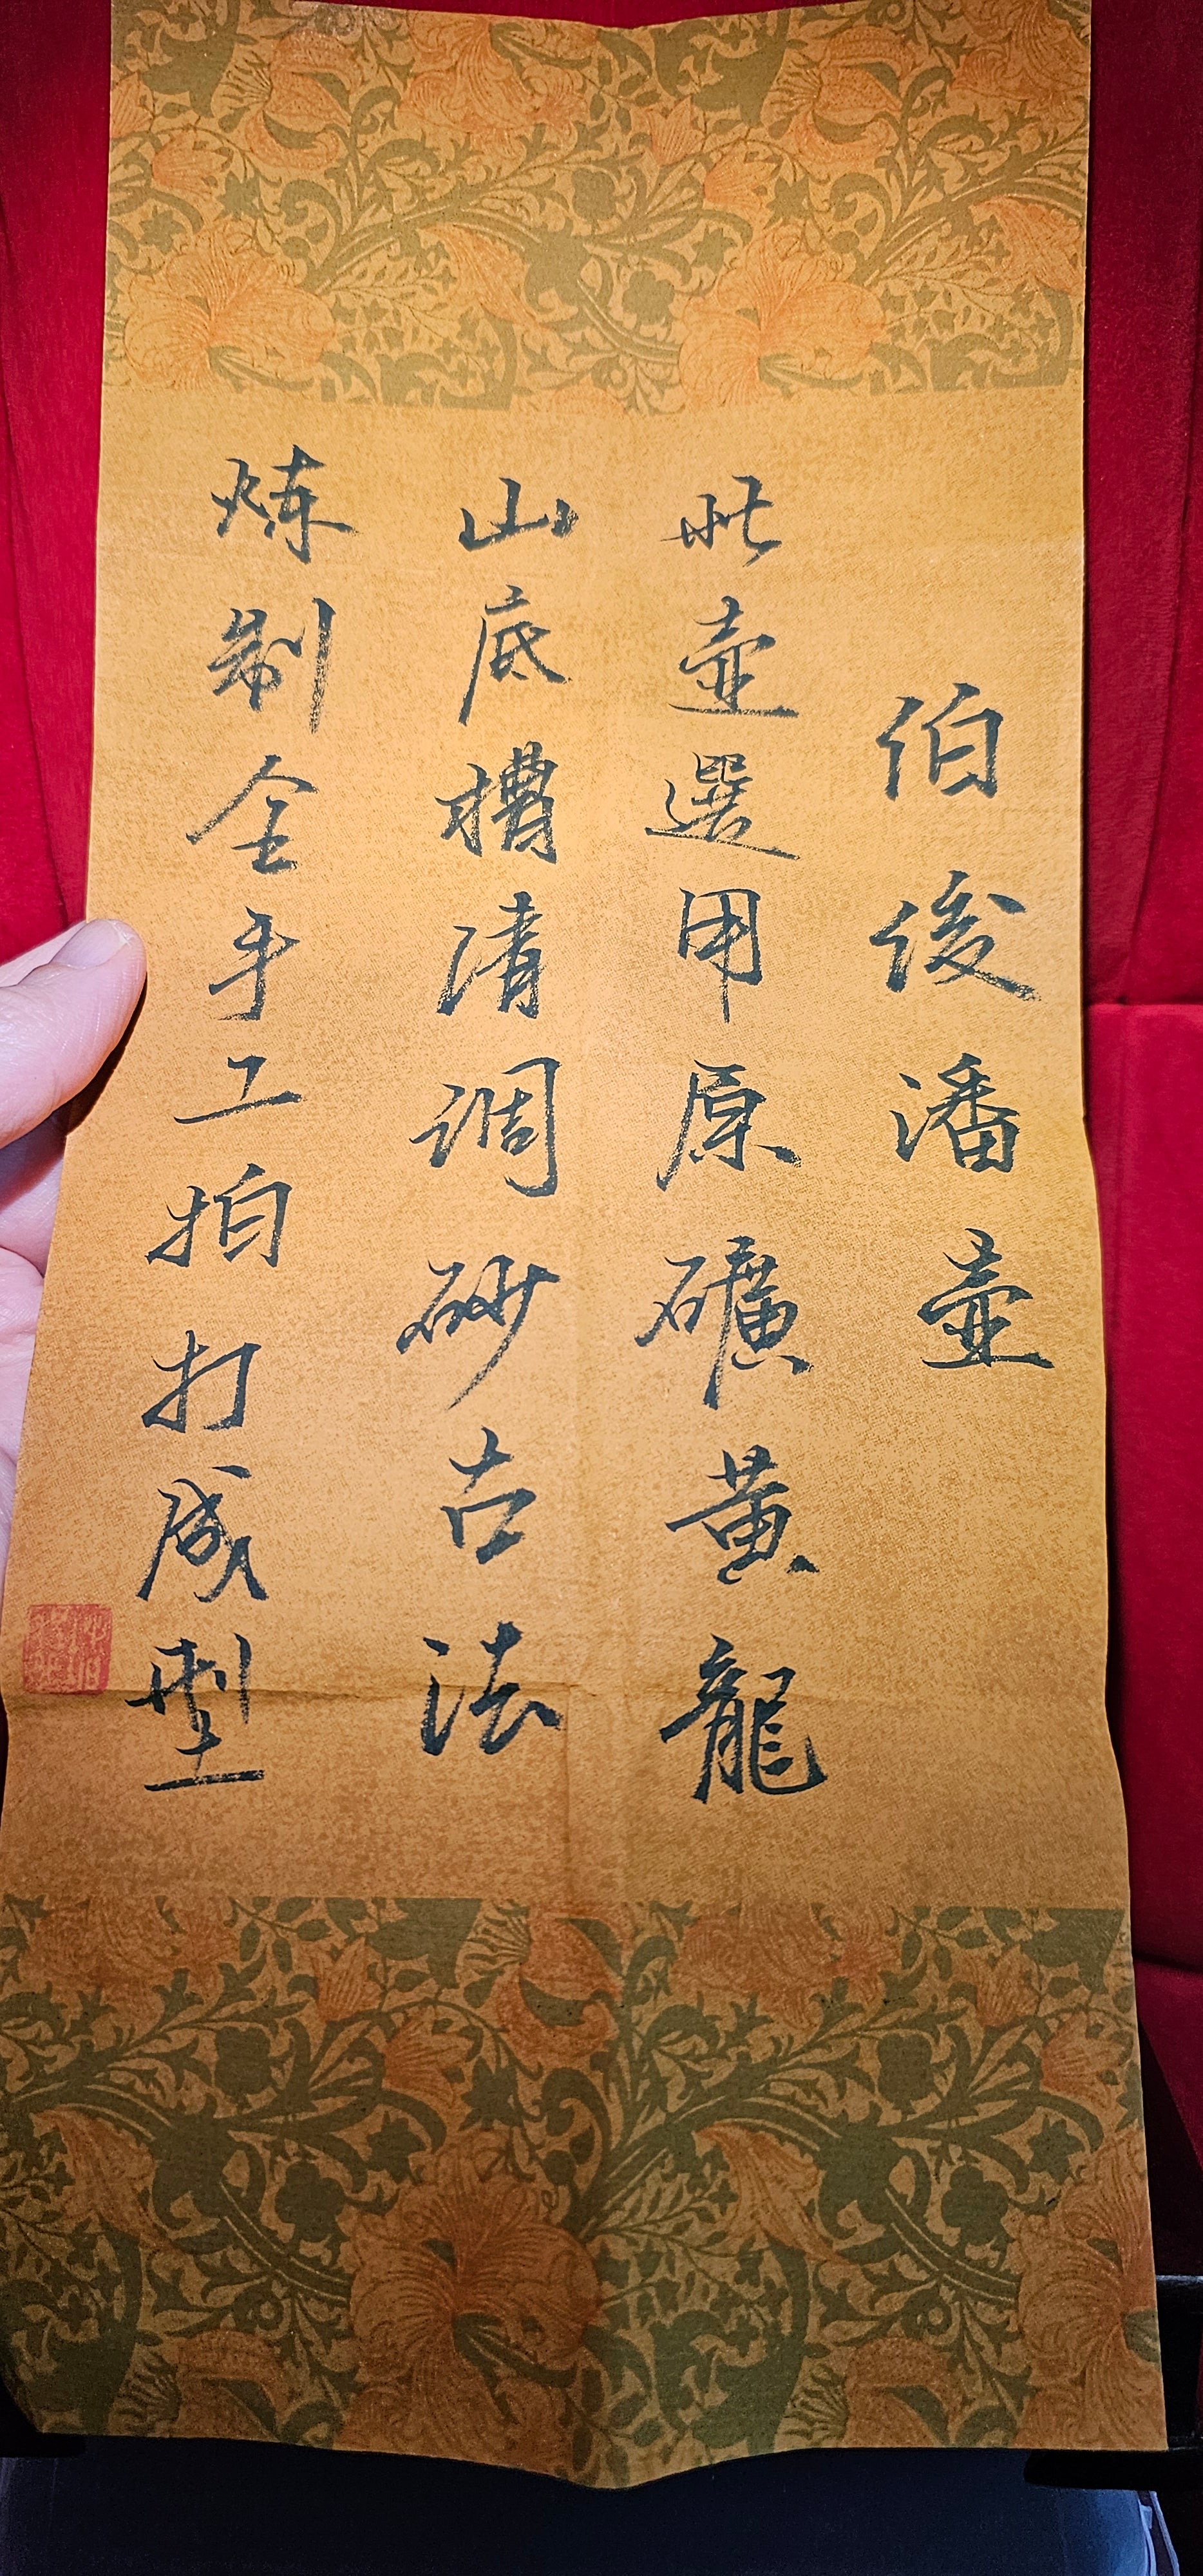 伯俊潘壶
此壶選用原礦黃龍
山底槽清调砂古法
炼制全手工拍打成型